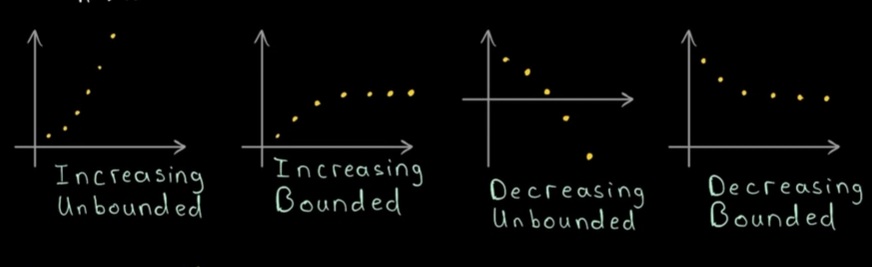 Increasing
Unbounded
Increasing
Bounded
Decreasing
Unbounded
Decreasing
Bounded